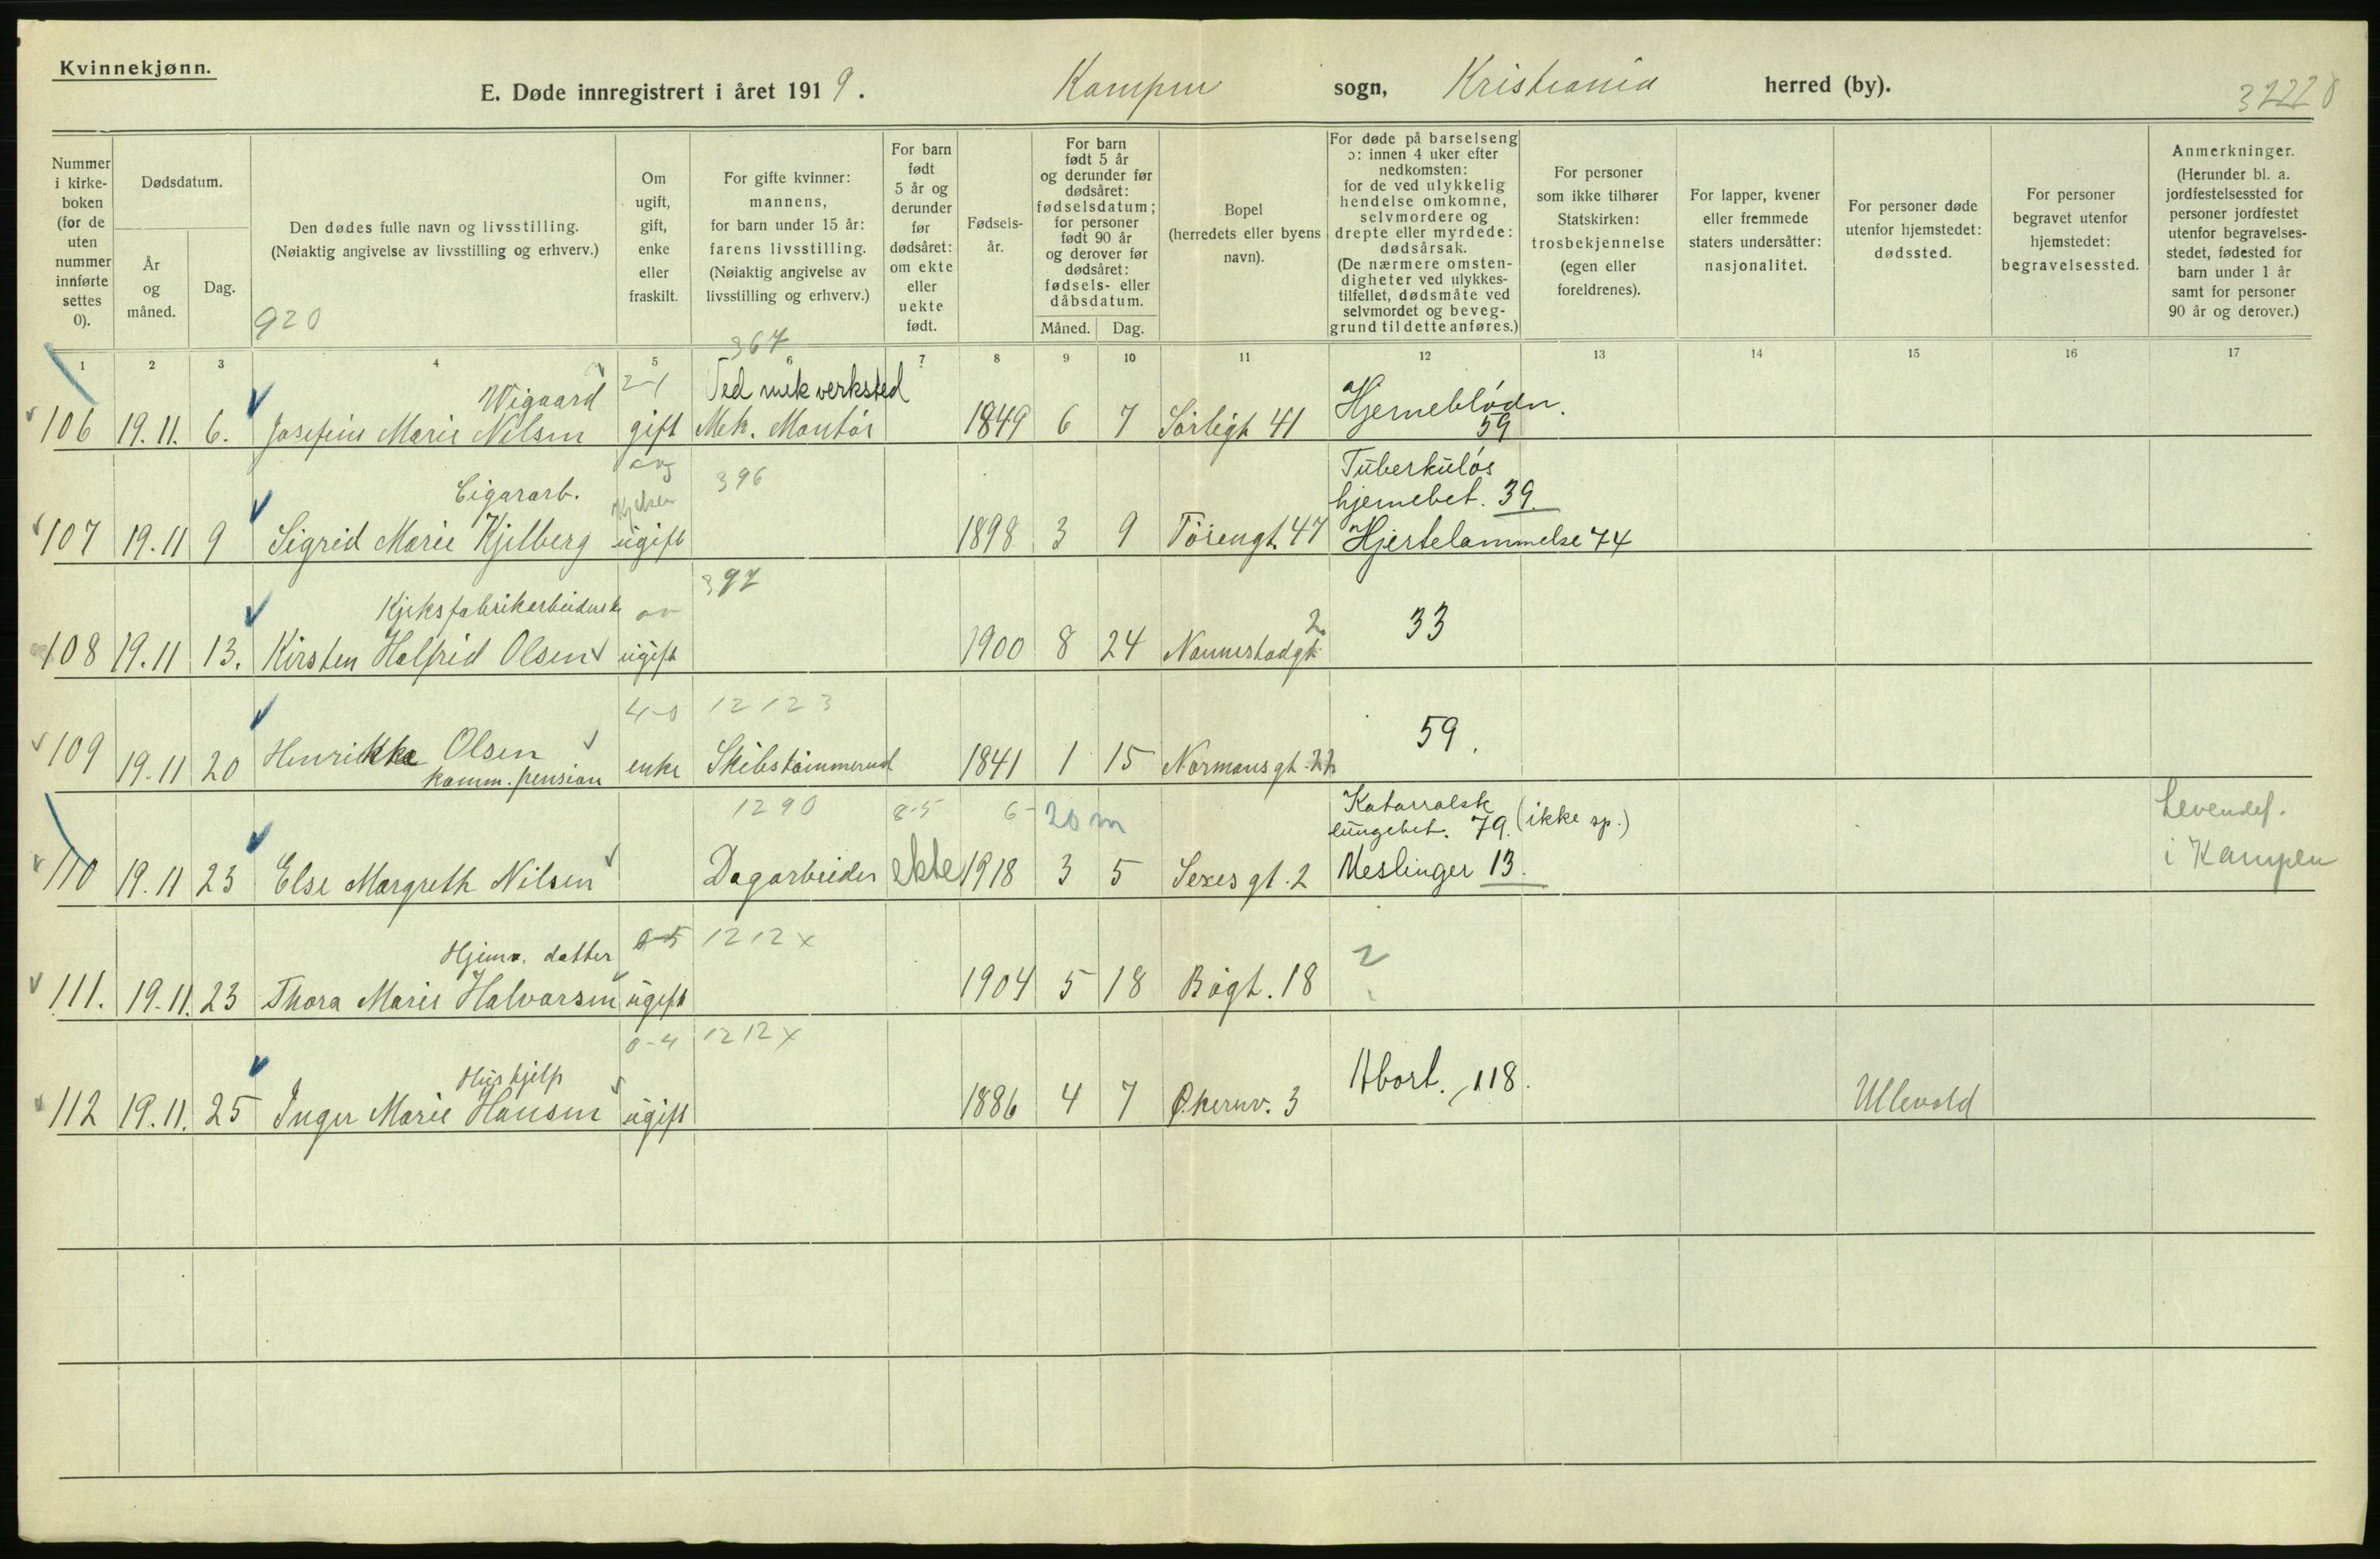 Kvinnekjønn.
E. Døde innregistrert i året 1919. Kampen sogn, Kristiania herred (by). 32228
Nummer i kirke-boken (for de uten nummer innførte settes 0).
Dødsdatum.
År og måned.
Dag.
Den dødes fulle navn og livsstilling.
(Nøiaktig angivelse av livsstilling og erhverv.)
920
Om ugift, gift, enke eller fraskilt.
For gifte kvinner: mannens, for barn under 15 år: farens livsstilling. (Nøiaktig angivelse av livsstilling og erhverv.)
For barn født 5 år og derunder før dødsåret: om ekte eller uekte født.
Fødsels-år.
For barn født 5 år og derunder før dødsåret: fødselsdatum; for personer født 90 år og derover før dødsåret: fødsels- eller dåbsdatum.
Måned. Dag.
Bopel (herredets eller byens navn).
For døde på barselseng ɔ: innen 4 uker efter nedkomsten: for de ved ulykkelig hendelse omkomne, selvmordere og drepte eller myrdede: dødsårsak. (De nærmere omsten-digheter ved ulykkes-tilfellet, dødsmåte ved selvmordet og beveg-grund til dette anføres.)
For personer som ikke tilhører Statskirken: trosbekjennelse (egen eller foreldrenes).
For lapper, kvener eller fremmede staters undersåtter: nasjonalitet.
For personer døde utenfor hjemstedet: dødssted.
For personer begravet utenfor hjemstedet: begravelsessted.
Anmerkninger. (Herunder bl. a. jordfestelsessted for personer jordfestet utenfor begravelses-stedet, fødested for barn under 1 år samt for personer 90 år og derover.)
1 2 3 4 5 6 7 8 9 10 11 12 13 14 15 16 17
367
Wigaard 2-1 Ved mek verksted
106 19.11. 6. Josefine Marie Nilsen gift Mek. Montör 1849 6 7 Sörligt 41 Hjerneblödn. 59
Cigararb. 396 Tuberkulös hjernebet. 39.
107 19.11 9 Sigrid Marie Kjelberg ugift 1898 3 9 Töiengt. 47 Hjertelammelse 74
Kjeksfabrikarbeiderske 397
108 19.11 13. Kirsten Halfrid Olsen ugift 1900 8 24 Nannestadgt. 2 33
4-0 12123
109 19.11 20 Henrikke Olsen enke Skibstömmermand 1841 1 15 Normansgt. 22 59.
komm. pension
1290 8-5 6- 20 m Katarralsk lungebet. 79. (ikke sp.) Levendef.
110 19.11 23 Else Margreth Nilsen Dagarbeider ekte 1918 3 5 Sexesgt. 2 Meslinger 13. i Kampen
Hjemv. datter 0-5 1212x
111. 19.11. 23 Thora Marie Halvorsen ugift 1904 5 18 Bögt. 18 ?
0-4 1212x
Hushjelp
112 19.11. 25 Inger Marie Hansen ugift 1886 4 7 Økernv. 3 Abort. 118. Ullevold